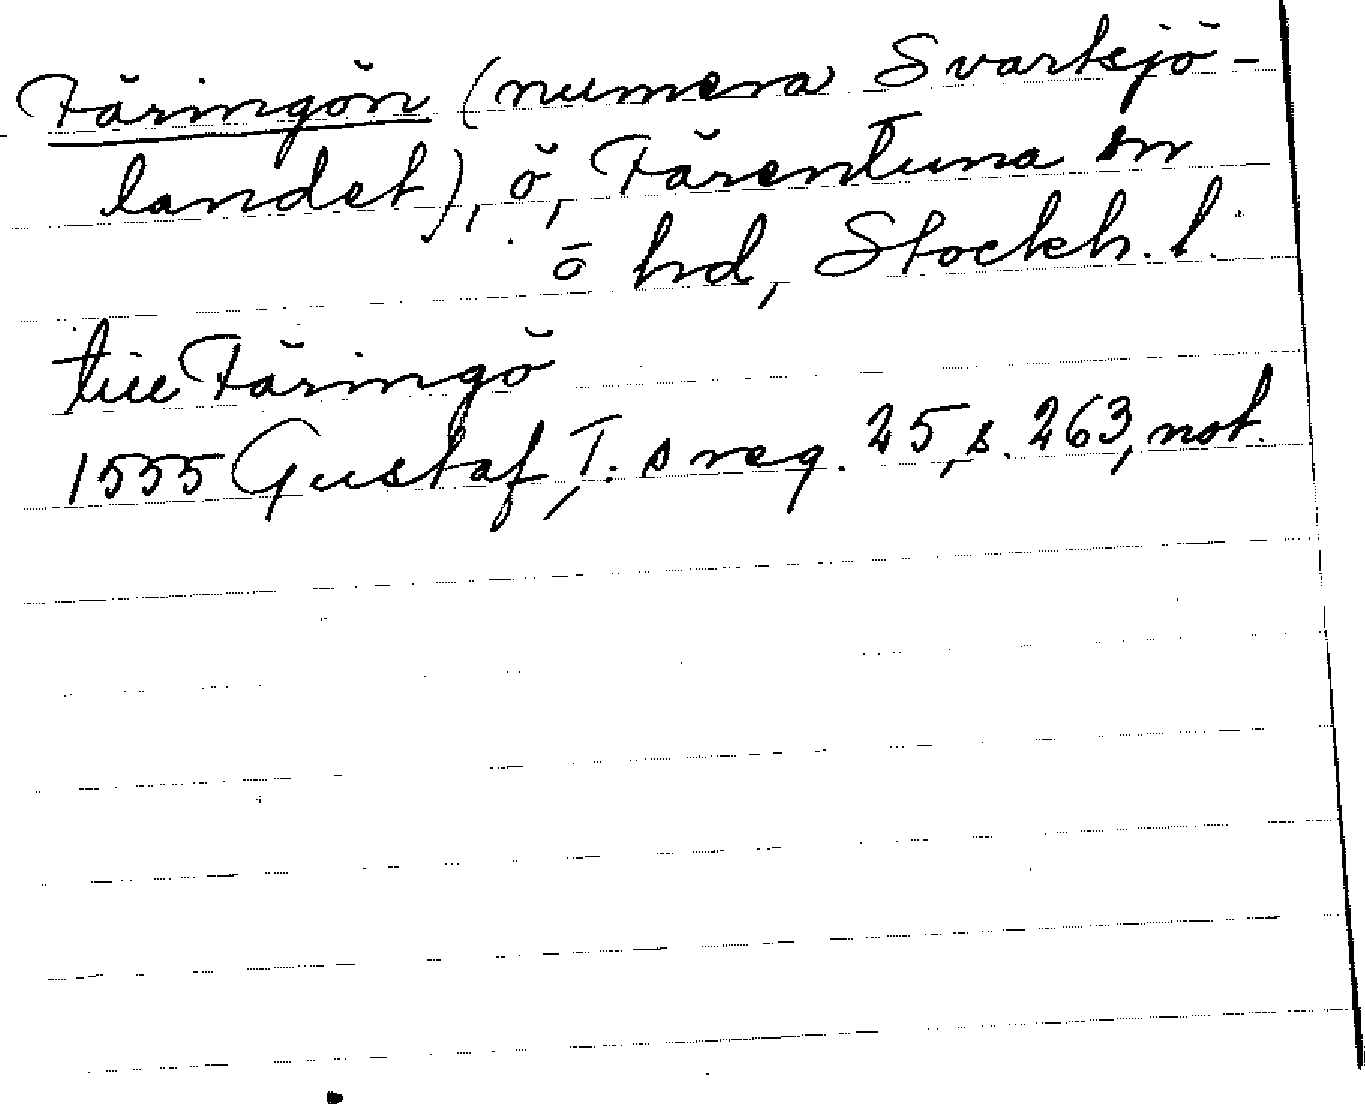 Färingön (numera Svartsjö-
landet), ö, Färentuna sn
o hd, Stockh. l.
till Färingö
1555 Gustaf, I: s reg. 25, s. 263, not.